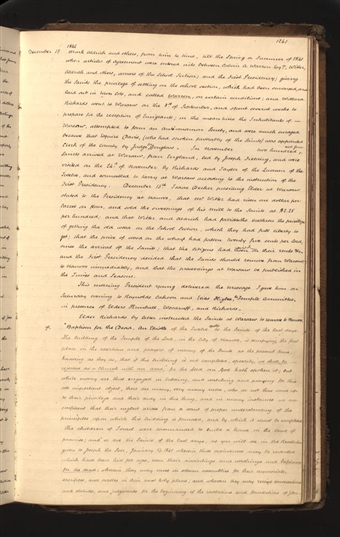 1841 1841
December 13 Mark Aldrich and others, from time to time, till the Spring or Summer of 1841
when articles of agreement were entered into between Calvin A. Warren Esqr., Witter,
Aldrich and others, owners of the School Section, and the First Presidency; giving
the Saints the privilege of settling on the school section, which had been surveyed, and
laid out in town lots, and called Warren, on certain conditions; and Willard
Richards went to Warsaw on the 8th of September, and spent several weeks to
prepare for the reception of Emigrants; in the mean time the Inhabitants of
Warsaw, attempted to form an Anti-mormon Society, and were much enraged
because that Esquire Davis, (who had spoken favorably of the Saints) was appointed
Clerk of the County by Judge Douglass. In November two hundred
Saints arrived at Warsaw from England, led by Joseph Fielding, and were
visited on the 24th of December by Richards and Taylor of the Quorum of the
Twelve, and counselled to tarry at Warsaw according to the instruction of the
First Presidency. December 13th Isaac Decker presiding Elder at Warsaw
stated to the Presidency at Nauvoo, that Mr Witter had risen one dollar per
barrel on flour, and sold the sweepings of his mill to the Saints at $2.25
per hundred; and that Witter and Aldrich had forbidden them the privilege
of getting old wood on the School Section, which they had full liberty to
get; that the price of wood on the wharf had fallen twenty five cents per Cord,
since the arrival of the Saints; that the citizens had risen on their rents &c.,
and the First Presidency decided that the Saints should remove from Warsaw
to Nauvoo immediately, and that the proceedings at Warsaw be published in
the Times and Seasons.
This morning President Young delivered the message I gave him on
Saturday evening to Reynolds Cahoon and Elias Higbee, Temple Committee,
in presence of Elders Kimball, Woodruff, and Richards.
Elder Richards by letter instructed the Saints at Warsaw to remove to Nauvoo.
"Baptism for the Dead. An Epistle of the Twelve to the Saints of the last days.
The building of the Temple of the Lord, in the City of Nauvoo, is occupying the first
place in the exertions and prayers of many of the Saints at the present time,
knowing as they do, that if this building is not completed, speedily, "we shall be
rejected as a Church with our dead"; for the Lord our God hath spoken it; But
while many are thus engaged in laboring, and watching and praying for this
all important object, there are many, very many more, who do not thus come up
to their privilege and their duty in this thing, and in many instances we are
confident that their neglect arises from a want of proper understanding of the
principles upon which this building is founded, and by which it must be completed.
The children of Israel were commanded to build a house in the land of
promise; and so are the Saints of the last days, as you will see in the Revelation
given to Joseph the Seer, January 19. 1841 wherein those ordinances may be revealed
which have been hid for ages, even their anointings and washings and baptisms
for the dead; wherein they may meet in solemn assemblies for their memorials,
sacrifices, and oracles in their most holy places; and wherein they may receive conversations
and statutes, and judgments for the beginning of the revelations and foundation of Zion